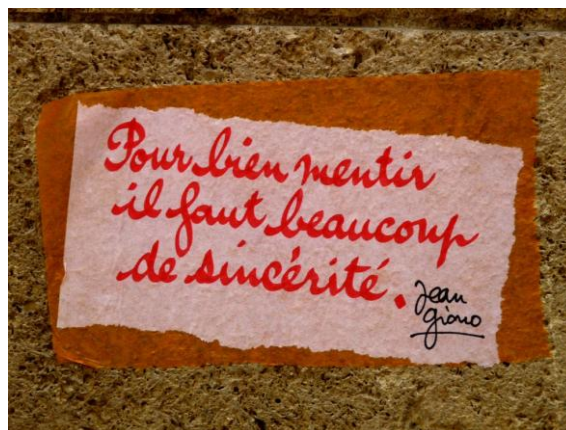 Pour bien mentir
il faut beaucoup
de sincérité.
Jean
giono